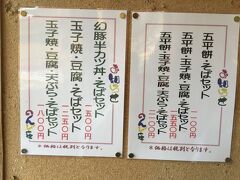 五平餅・そばセット
一二五〇円
五平餅・玉子焼・そばセット
一五五〇円
五平餅・玉子焼・豆腐・天ぷら・そばセット
二一〇〇円
＊価格は税別となります。
幻豚半カツ丼・そばセット
一五〇〇円
玉子焼・豆腐・そばセット
一二五〇円
玉子焼・豆腐・天ぷら・そばセット
一八〇〇円
＊価格は税別となります。